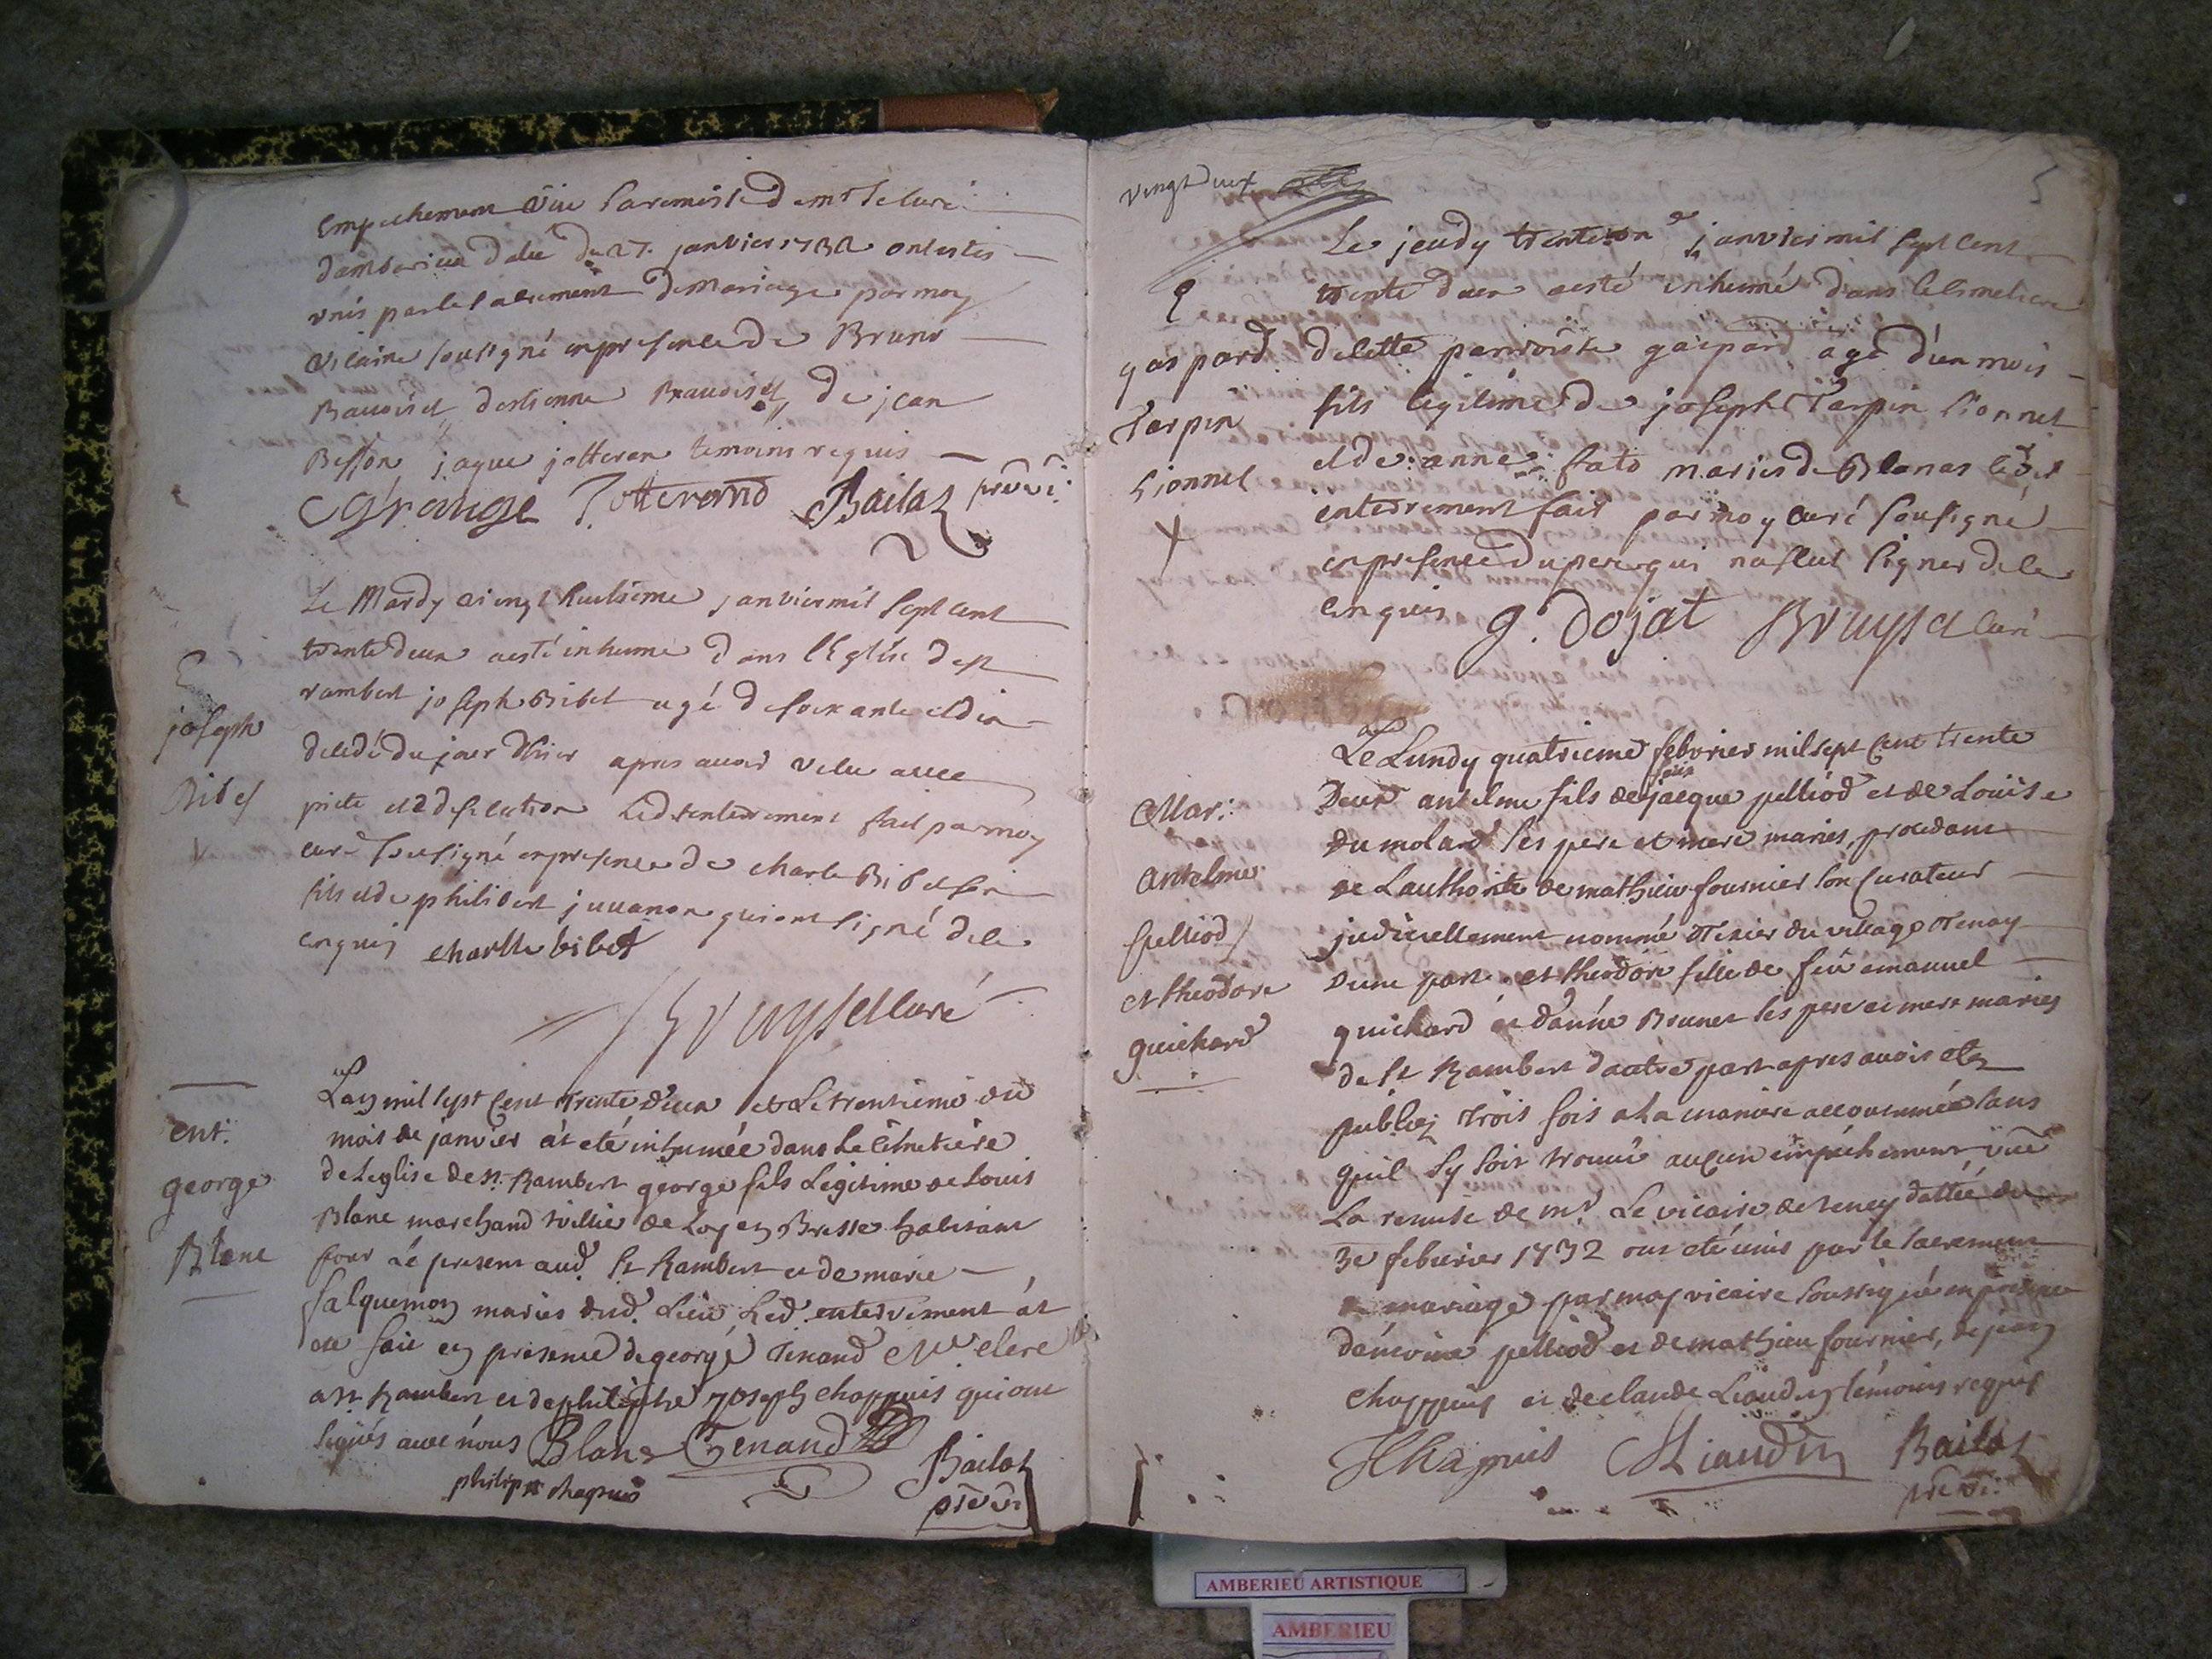 Empechement vüe la remise de mr le curé
damberieu datée du 27. janvier 1732 ont estés
unis par le sacrement de mariage par moy
vicaire sousigné en presence de Bruno
Bauoiset, destienne Brauoiset, de jean
Besson jaque jotteran temoins requis
Grange Jotterand Bailat prevt:
Le Mardy vingt huitieme janvier mil sept cent
trente deux a esté inhumé dans l'Eglise de st
rambert joseph Bibet agé de soixante et dix
decedé du jour d'hier apres auoir vecu auec
pieté et edification led. enterrement fait par moy
curé sousigné en presence de charle Bibet son
fils et de philibert juuanon qui ont signé de ce
enquis charlle bibet
Bruyset curé
joseph
Bibet
Lan mil sept cent trente deux et le trentieme du
mois de janvier at eté inhumée dans le cimetiere
de Leglise de st. Rambert george fils Legitime de Louis
Blanc marchand de Loy en Bresse habitant
pour le present aud. st Rambert et de marie
falquemon mariés dud. Lieu Led. enterrement at
eté fait en presence de george Tenand clerc
a st. Rambert et de philippe joseph chappuis qui ont
signés auec nous Blanc Tenand
philipe chapuis Bailat
prevt
ent.
george
Blanc
vingt deux
5
Le jeudy trente un janvier mil sept cent
trente deux a esté inhumé dans le cimetiere
de cette parroisse gaspard agé d'un mois
fils legitime de joseph Tarpin Lionnet
et de anne fato mariés de Blanas led.
enterrement fait par moy curé sousigné
en presence du pere qui na sceut signer de ce
enquis g. Dojat Bruyset curé
gaspard
Tarpin
Lionnet
Le Lundy quatrieme febvrier mil sept cent trente
Deux antelme fils de feu jacque pelliod et de Louise
du molard ses pere et mere mariés, procedant
de Lauthorité de mathieu fournier son curateur
judiciellement nommé du village Tenay
dune part et theodore fille de feü emanuel
guichard et d'anne Brunet ses pere et mere mariés
de st Rambert dautre part apres auoir etez
publiez trois fois a La maniere accoutumée sans
quil sy soit trouué aucun empéchement vüe
La remise de mr. Le vicaire de teney dattée du
3e febvrier 1732 ont eté unis par le sacrement
mariage par moy vicaire soussigné en presence
dantoine pelliod et de mathieu fournier, de jean
chappuis et de claude Liaudin témoins requis
Chapuis Liaudin Bailat
prevt:
Mar:
Antelme
pelliod
et theodore
guichard
AMBERIEU ARTISTIQUE
AMBERIEU